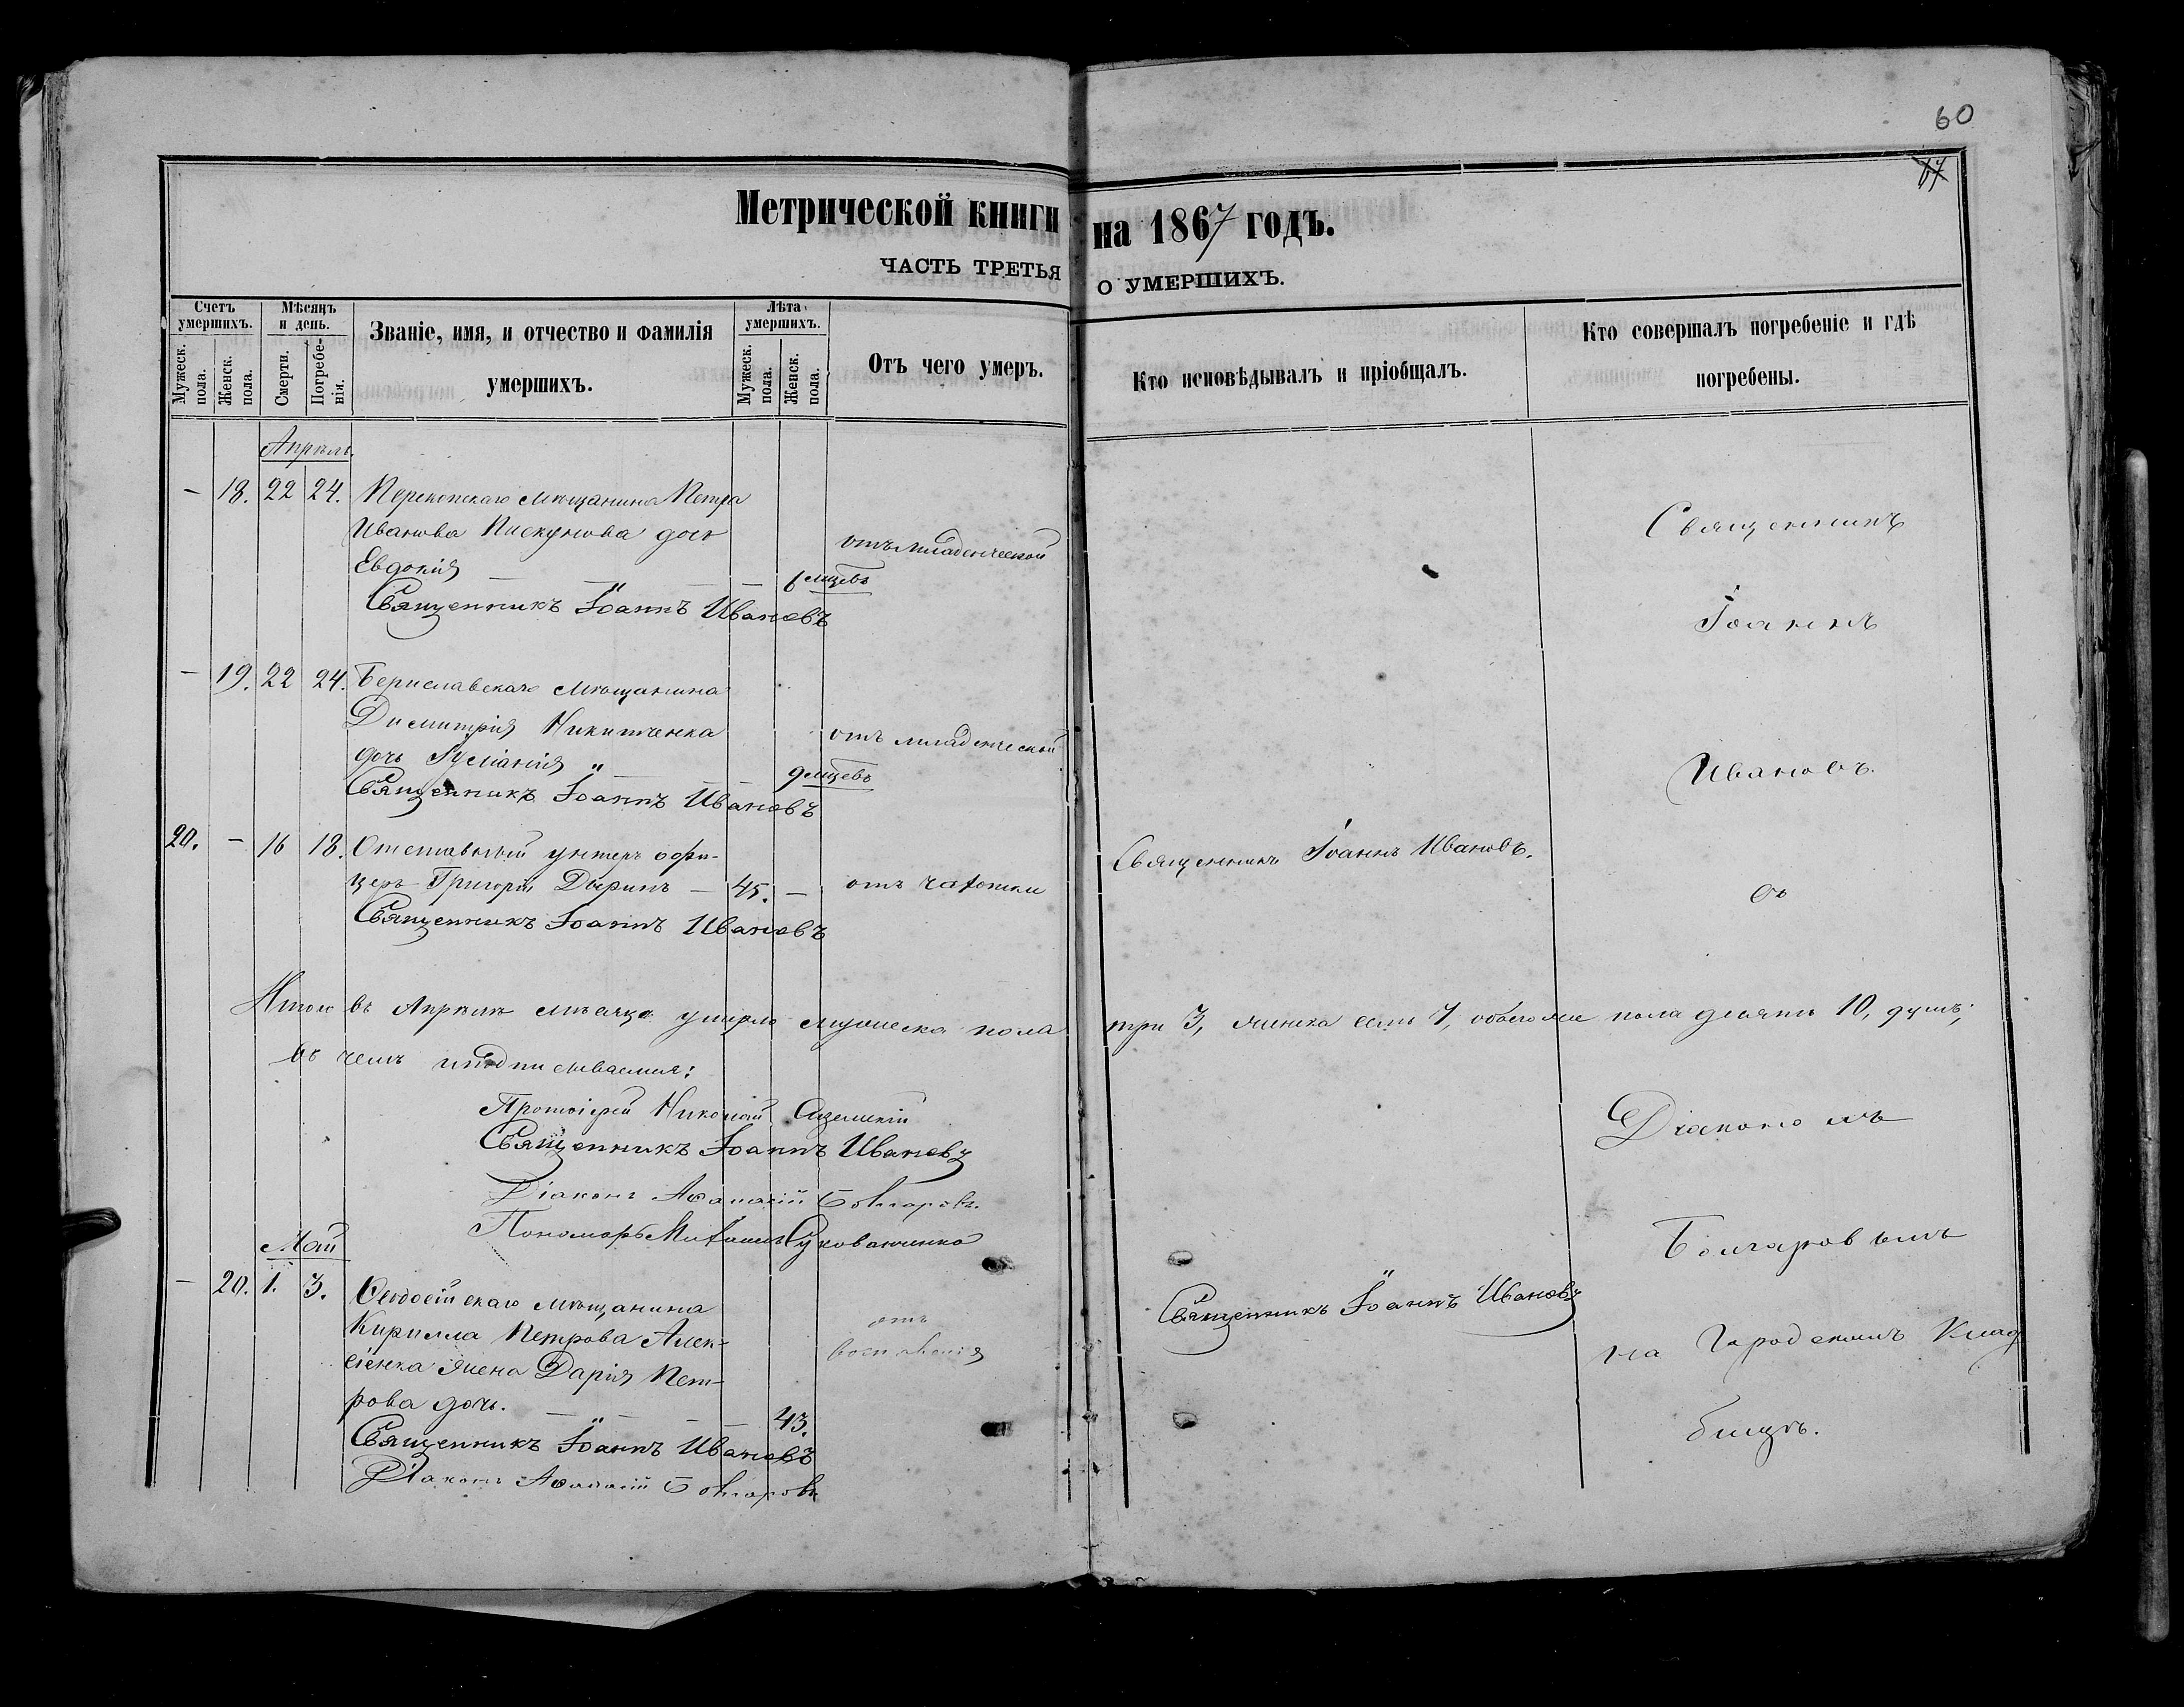 60
67
Метрической книги на 1867 годъ.
ЧАСТЬ ТРЕТЬЯ О УМЕРШИХЪ.
Счетъ умершихъ.
Мужеск. пола.
Женск. пола.
Мѣсяцъ и день.
Смерти.
Погребенія.
Званіе, имя, и отчество и фамилія умершихъ.
Лѣта умершихъ.
Мужеск. пола.
Женск. пола.
Отъ чего умеръ.
Кто исповѣдывалъ и пріобщалъ.
Кто совершалъ погребеніе и гдѣ погребены.
Апрѣль.
– 18. 22 24. Перекопскаго мѣщанина Петра
Иванова Пискунова дочь
Евдокія
отъ младенческой
Священникъ Іоаннъ Ивановъ
– 19. 22 24. Бериславскаго мѣщанина
Димитрія Никитченка
дочь
9 мѣсцевъ
отъ младенческой
Священникъ Іоаннъ Ивановъ
20. – 16 18. Отставный унтеръ офи-
церъ Григорій Дыринъ – 45. – отъ чахотки
Священникъ Іоаннъ Ивановъ.
Священникъ Іоаннъ Ивановъ
Итого въ Апрѣлѣ мѣсяцѣ умерло мужеска пола три 3, женска семь 7, обоего же пола десять 10, душъ;
въ чемъ и подписываемся:
Протоіерей Николай
Священникъ Іоаннъ Ивановъ
Діаконъ Афанасій Болгаровъ.
Пономарь Михаилъ
Май
– 20. 1. 3. Ѳеодосійскаго мѣщанина
Кирилла Петрова Алек-
сіенка жена Дарія Пет-
рова дочь. 43.
отъ
воспаленія
Священникъ Іоаннъ Ивановъ
Священникъ Іоаннъ Ивановъ
Діаконъ Афанасій Болгаровъ
Священникъ
Іоаннъ
Ивановъ.
съ
Діакономъ
Болгаровымъ
на Городскомъ Клад
бищѣ.